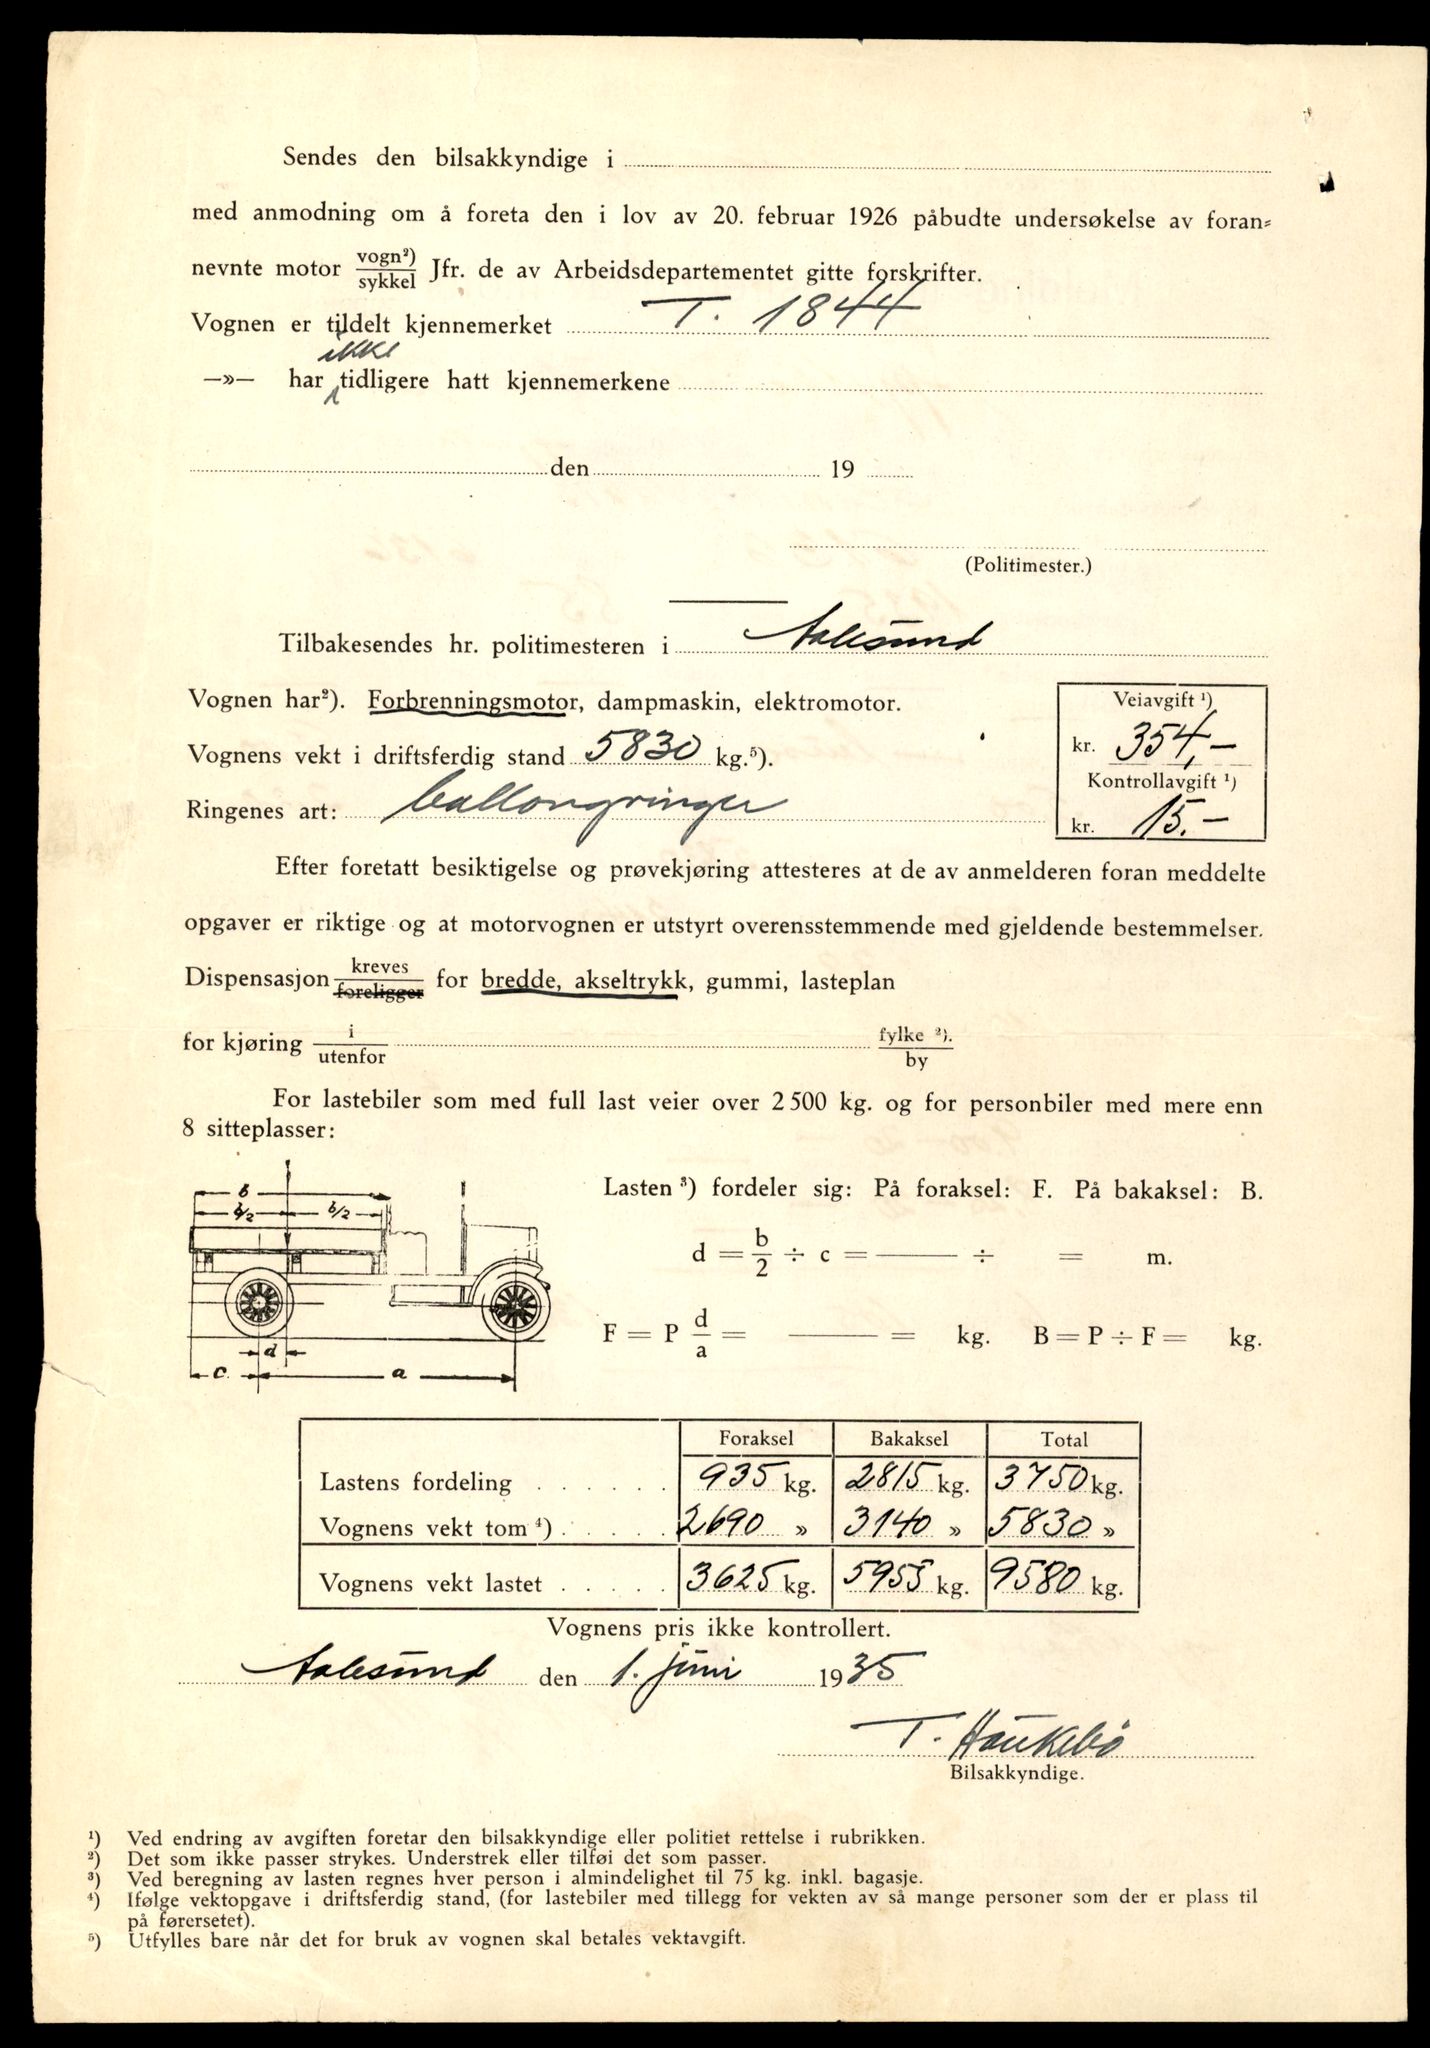 Sendes den bilsakkyndige i
med anmodning om å foreta den i lov av 20. februar 1926 påbudte undersøkelse av foran=
nevnte motor vogn²)/sykkel Jfr. de av Arbeidsdepartementet gitte forskrifter.
Vognen er tildelt kjennemerket T. 1844
ikke
—»— har tidligere hatt kjennemerkene
den 19
(Politimester.)
Tilbakesendes hr. politimesteren i Aalesund
Vognen har²). Forbrenningsmotor, dampmaskin, elektromotor.
Veiavgift ¹)
kr. 354,-
Vognens vekt i driftsferdig stand 5830 kg.⁵).
Kontrollavgift ¹)
kr. 15.-
Ringenes art: ballongringer
Efter foretatt besiktigelse og prøvekjøring attesteres at de av anmelderen foran meddelte
opgaver er riktige og at motorvognen er utstyrt overensstemmende med gjeldende bestemmelser.
Dispensasjon kreves/foreligger for bredde, akseltrykk, gummi, lasteplan
for kjøring i/utenfor fylke ²)./by
For lastebiler som med full last veier over 2 500 kg. og for personbiler med mere enn
8 sitteplasser:
b
b/2 b/2
d
c. a
Lasten ³) fordeler sig: På foraksel: F. På bakaksel: B.
d = b/2 ÷ c = —— ÷ = m.
F = P d/a = —— = kg. B = P ÷ F = kg.
Foraksel Bakaksel Total
Lastens fordeling . . . . . . 935 kg. 2815 kg. 3750 kg.
Vognens vekt tom ⁴) . . . . . 2690 » 3140 » 5830 »
Vognens vekt lastet . . . . . 3625 kg. 5955 kg. 9580 kg.
Vognens pris ikke kontrollert.
Aalesund den 1. juni 1935
T. Haukebø
Bilsakkyndige.
¹) Ved endring av avgiften foretar den bilsakkyndige eller politiet rettelse i rubrikken.
²) Det som ikke passer strykes. Understrek eller tilføi det som passer.
³) Ved beregning av lasten regnes hver person i almindelighet til 75 kg. inkl. bagasje.
⁴) Ifølge vektopgave i driftsferdig stand, (for lastebiler med tillegg for vekten av så mange personer som der er plass til
på førersetet).
⁵) Utfylles bare når det for bruk av vognen skal betales vektavgift.